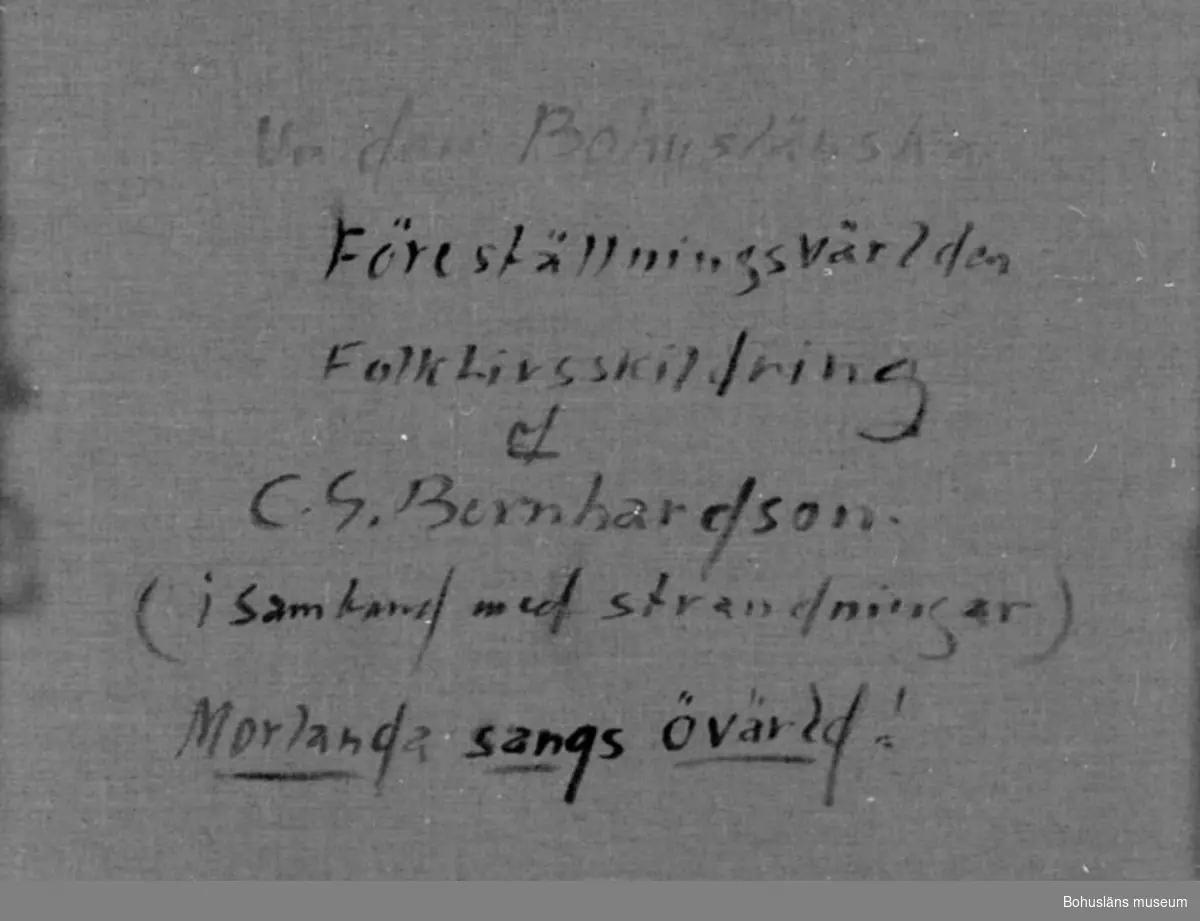 Ur den Bohuslänska
Föreställningsvärlden
Folklivsskildring
af
C.G. Bernhardson.
(i samband med strandningar)
Morlanda sangs övärld!
Bohusläns museum